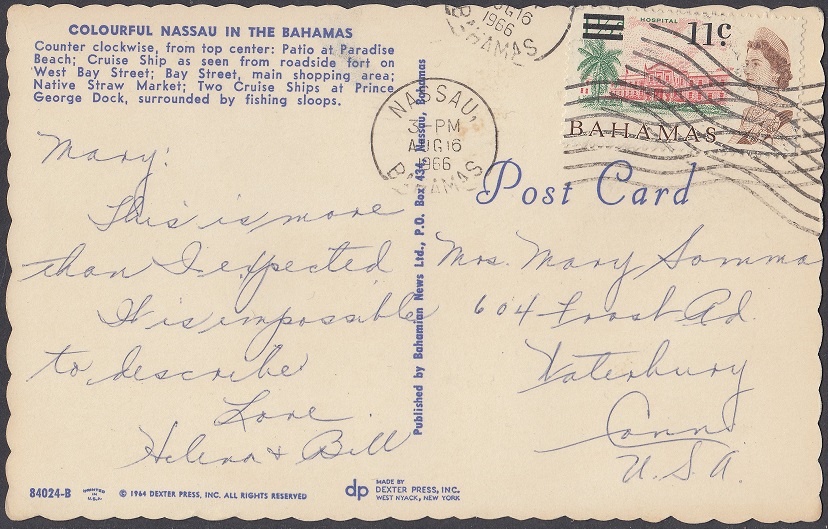 COLOURFUL NASSAU IN THE BAHAMAS
Counter clockwise, from top center: Patio at Paradise
Beach; Cruise Ship as seen from roadside fort on
West Bay Street; Bay Street, main shopping area;
Native Straw Market; Two Cruise Ships at Prince
George Dock, surrounded by fishing sloops.
AUG16
1966
BAHAMAS
HOSPITAL
11c
BAHAMAS
NASSAU,
3-PM
AUG16
1966
BAHAMAS
Post Card
Mary:
This is more
than I expected
It is impossible
to describe
Love
Helena & Bill
Published by Bahamian News Ltd., P.O. Box 434, Nassau, Bahamas
Mrs. Mary Somma
604 Frost Rd.
Waterbury
Conn
U.S.A.
84024-B
PRINTED
IN
U.S.A.
© 1964 DEXTER PRESS, INC. ALL RIGHTS RESERVED
dp
MADE BY
DEXTER PRESS, INC.
WEST NYACK, NEW YORK